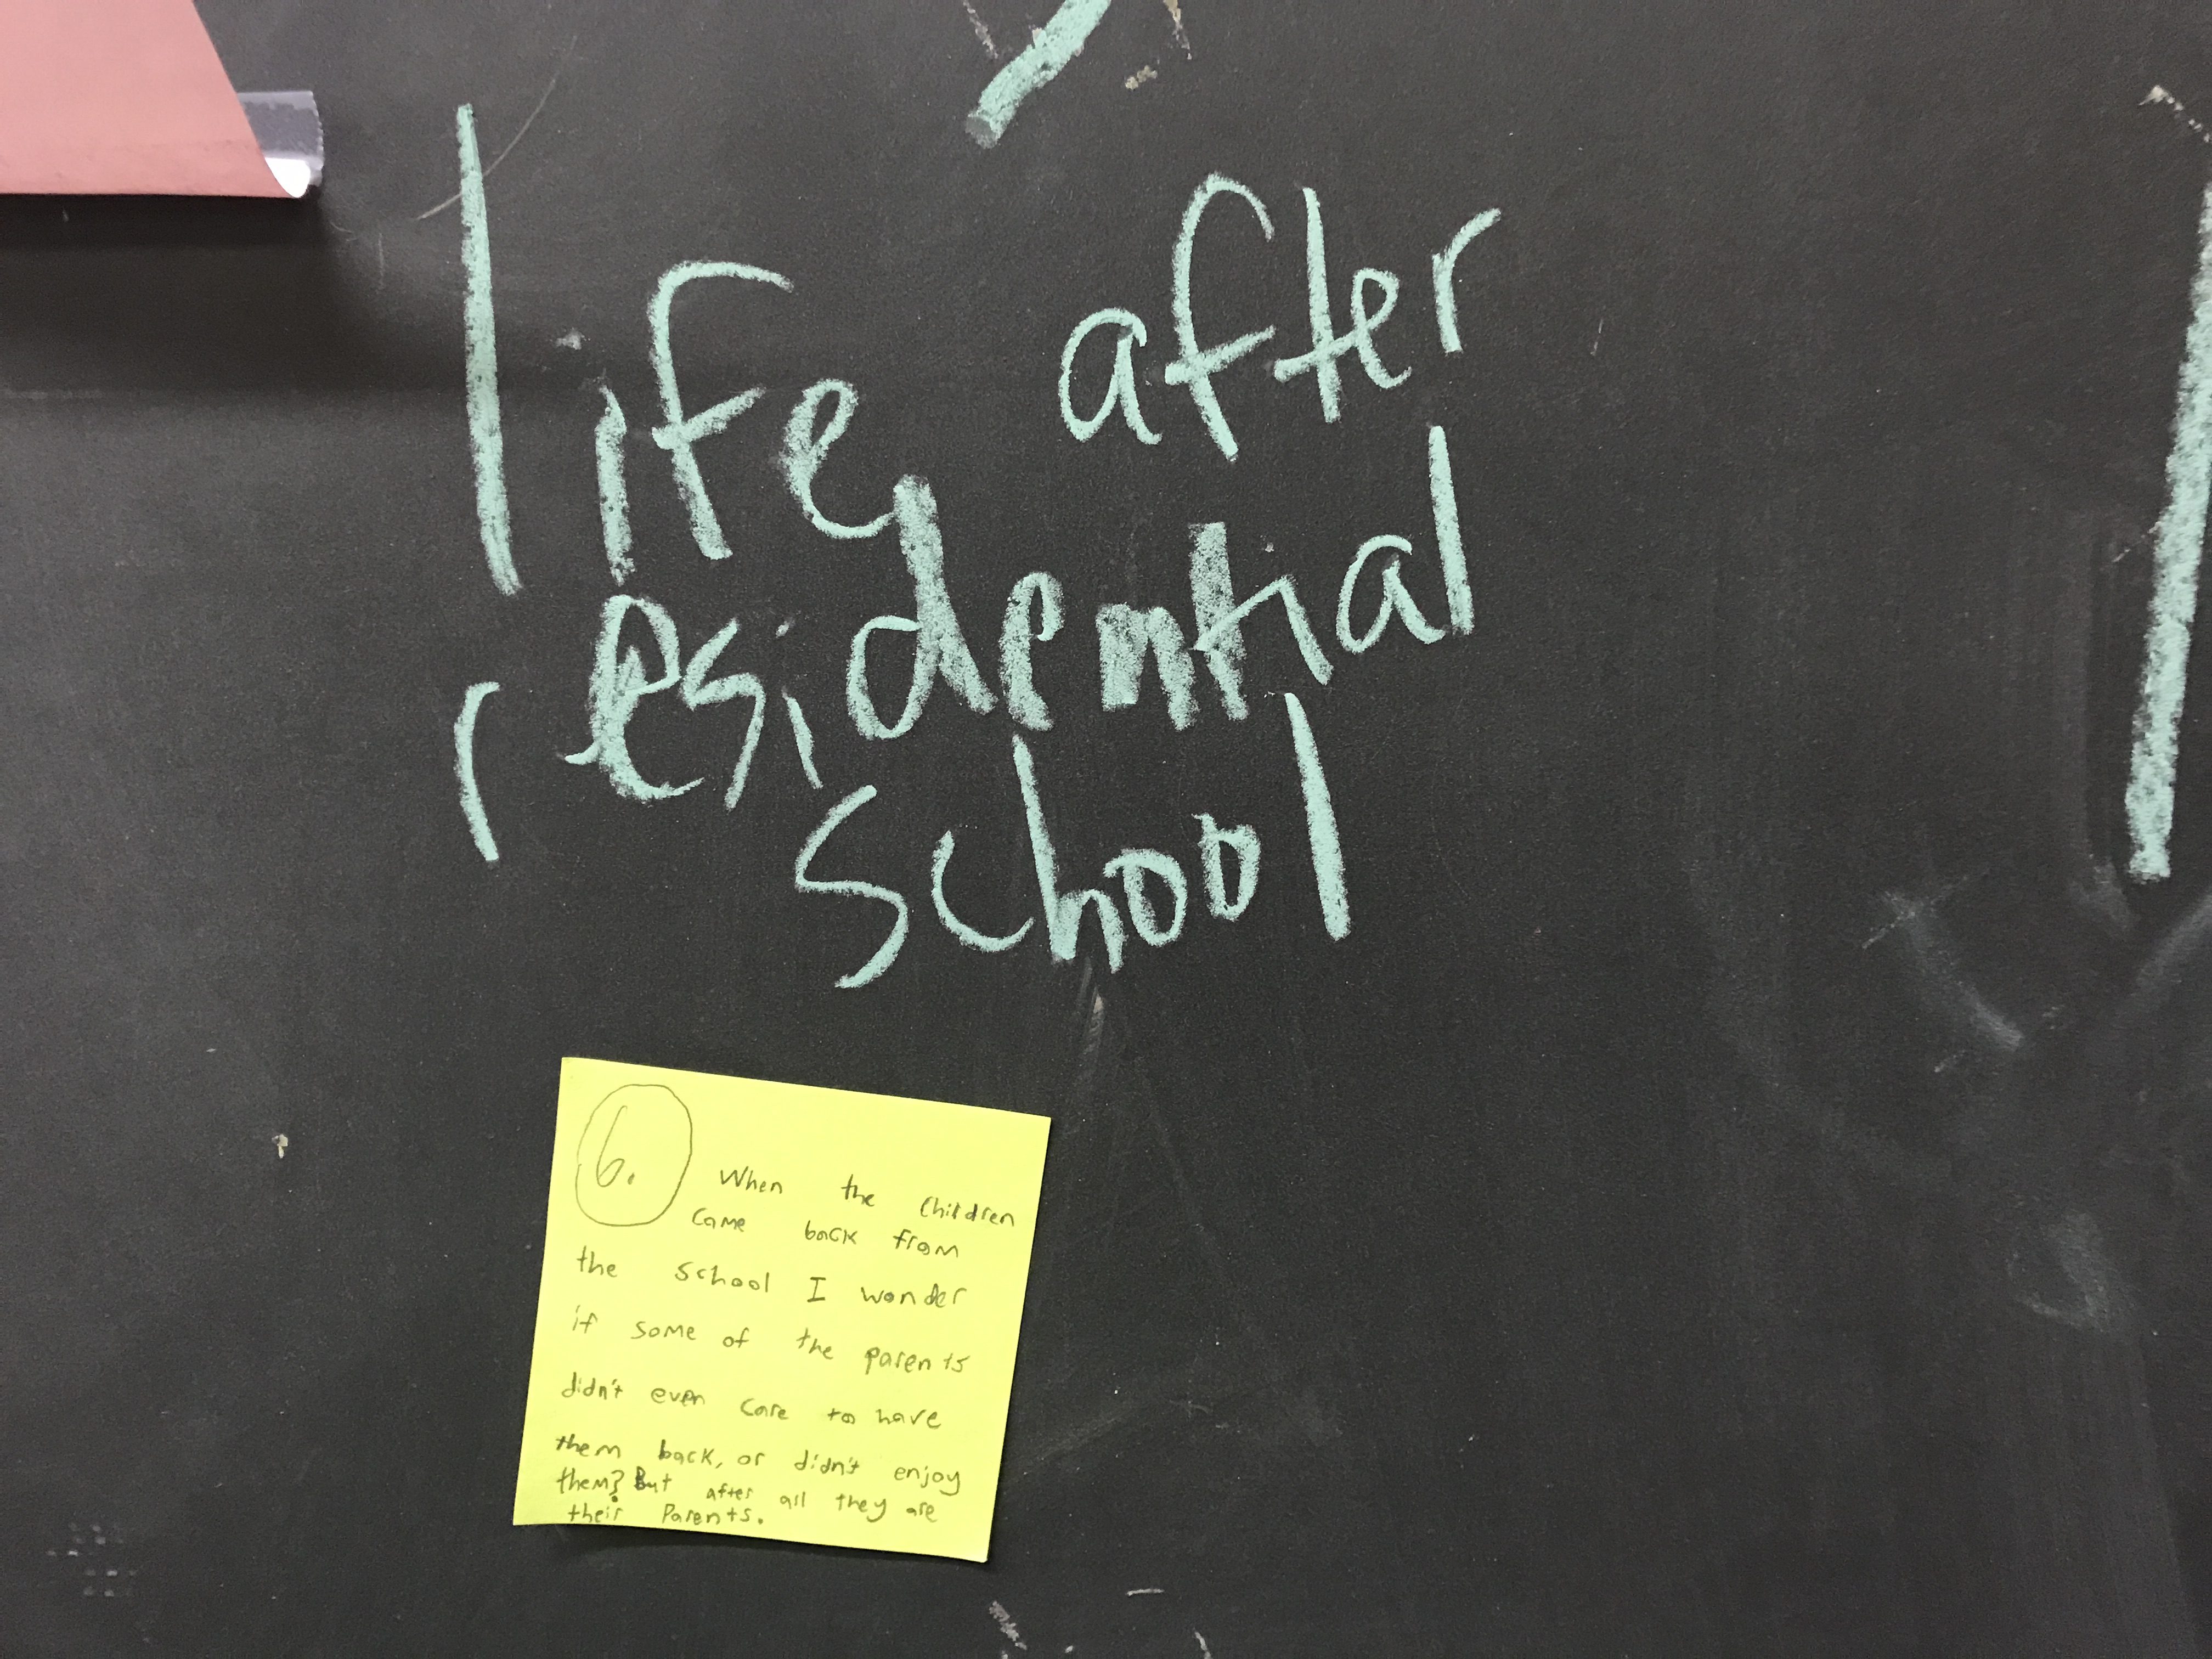 life after
residential
school
6.
When the children
came back from
the school I wonder
if some of the parents
didn't even care to have
them back, or didn't enjoy
them? But after all they are
their Parents.